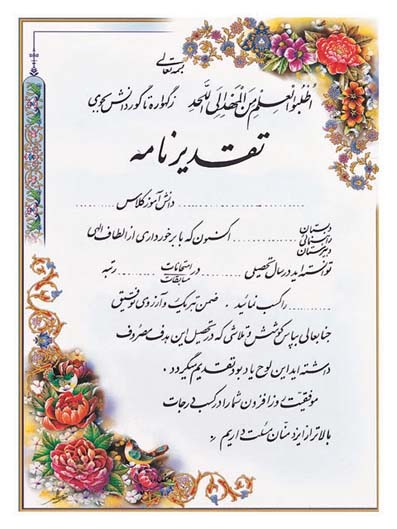 بسمه تعالی
اُطْلُبُوا الْعِلْمَ مِنَ الْمَهْدِ اِلَی اللَّحَدِ زگهواره تا گور دانش بجوی
تقدیرنامه
........................ دانش آموز کلاس ................
دبستان
راهنمائی ................ اکنون که با برخورداری از الطاف الهی
دبیرستان
توانسته اید در سال تحصیلی ............ در امتحانات ............ رتبه
مسابقات
................ را کسب نمائید . ضمن تبریک و آرزوی توفیق
جنابعالی بپاس کوشش و تلاشی که در تحصیل این هدف مصروف
داشته اید این لوح یادبود تقدیم میگردد .
موفقیت روزافزون شما را در کسب درجات
بالاتر از ایزد منّان مسئلت داریم